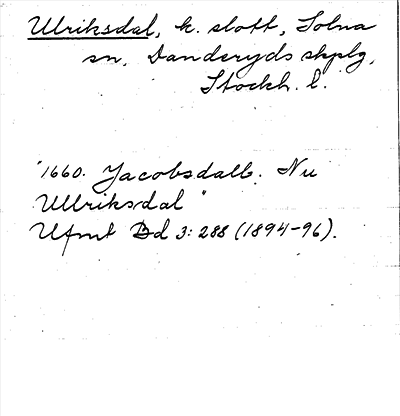 Ulriksdal, k. slott, Solna
sn, Danderyds skplg,
Stockh. l.
"1660. Jacobsdall. Nu
Ullriksdal"
Ufmt Bd 3: 288 (1894-96).